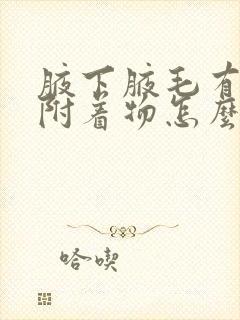 腋下腋毛有
附着物怎麼
哈喫